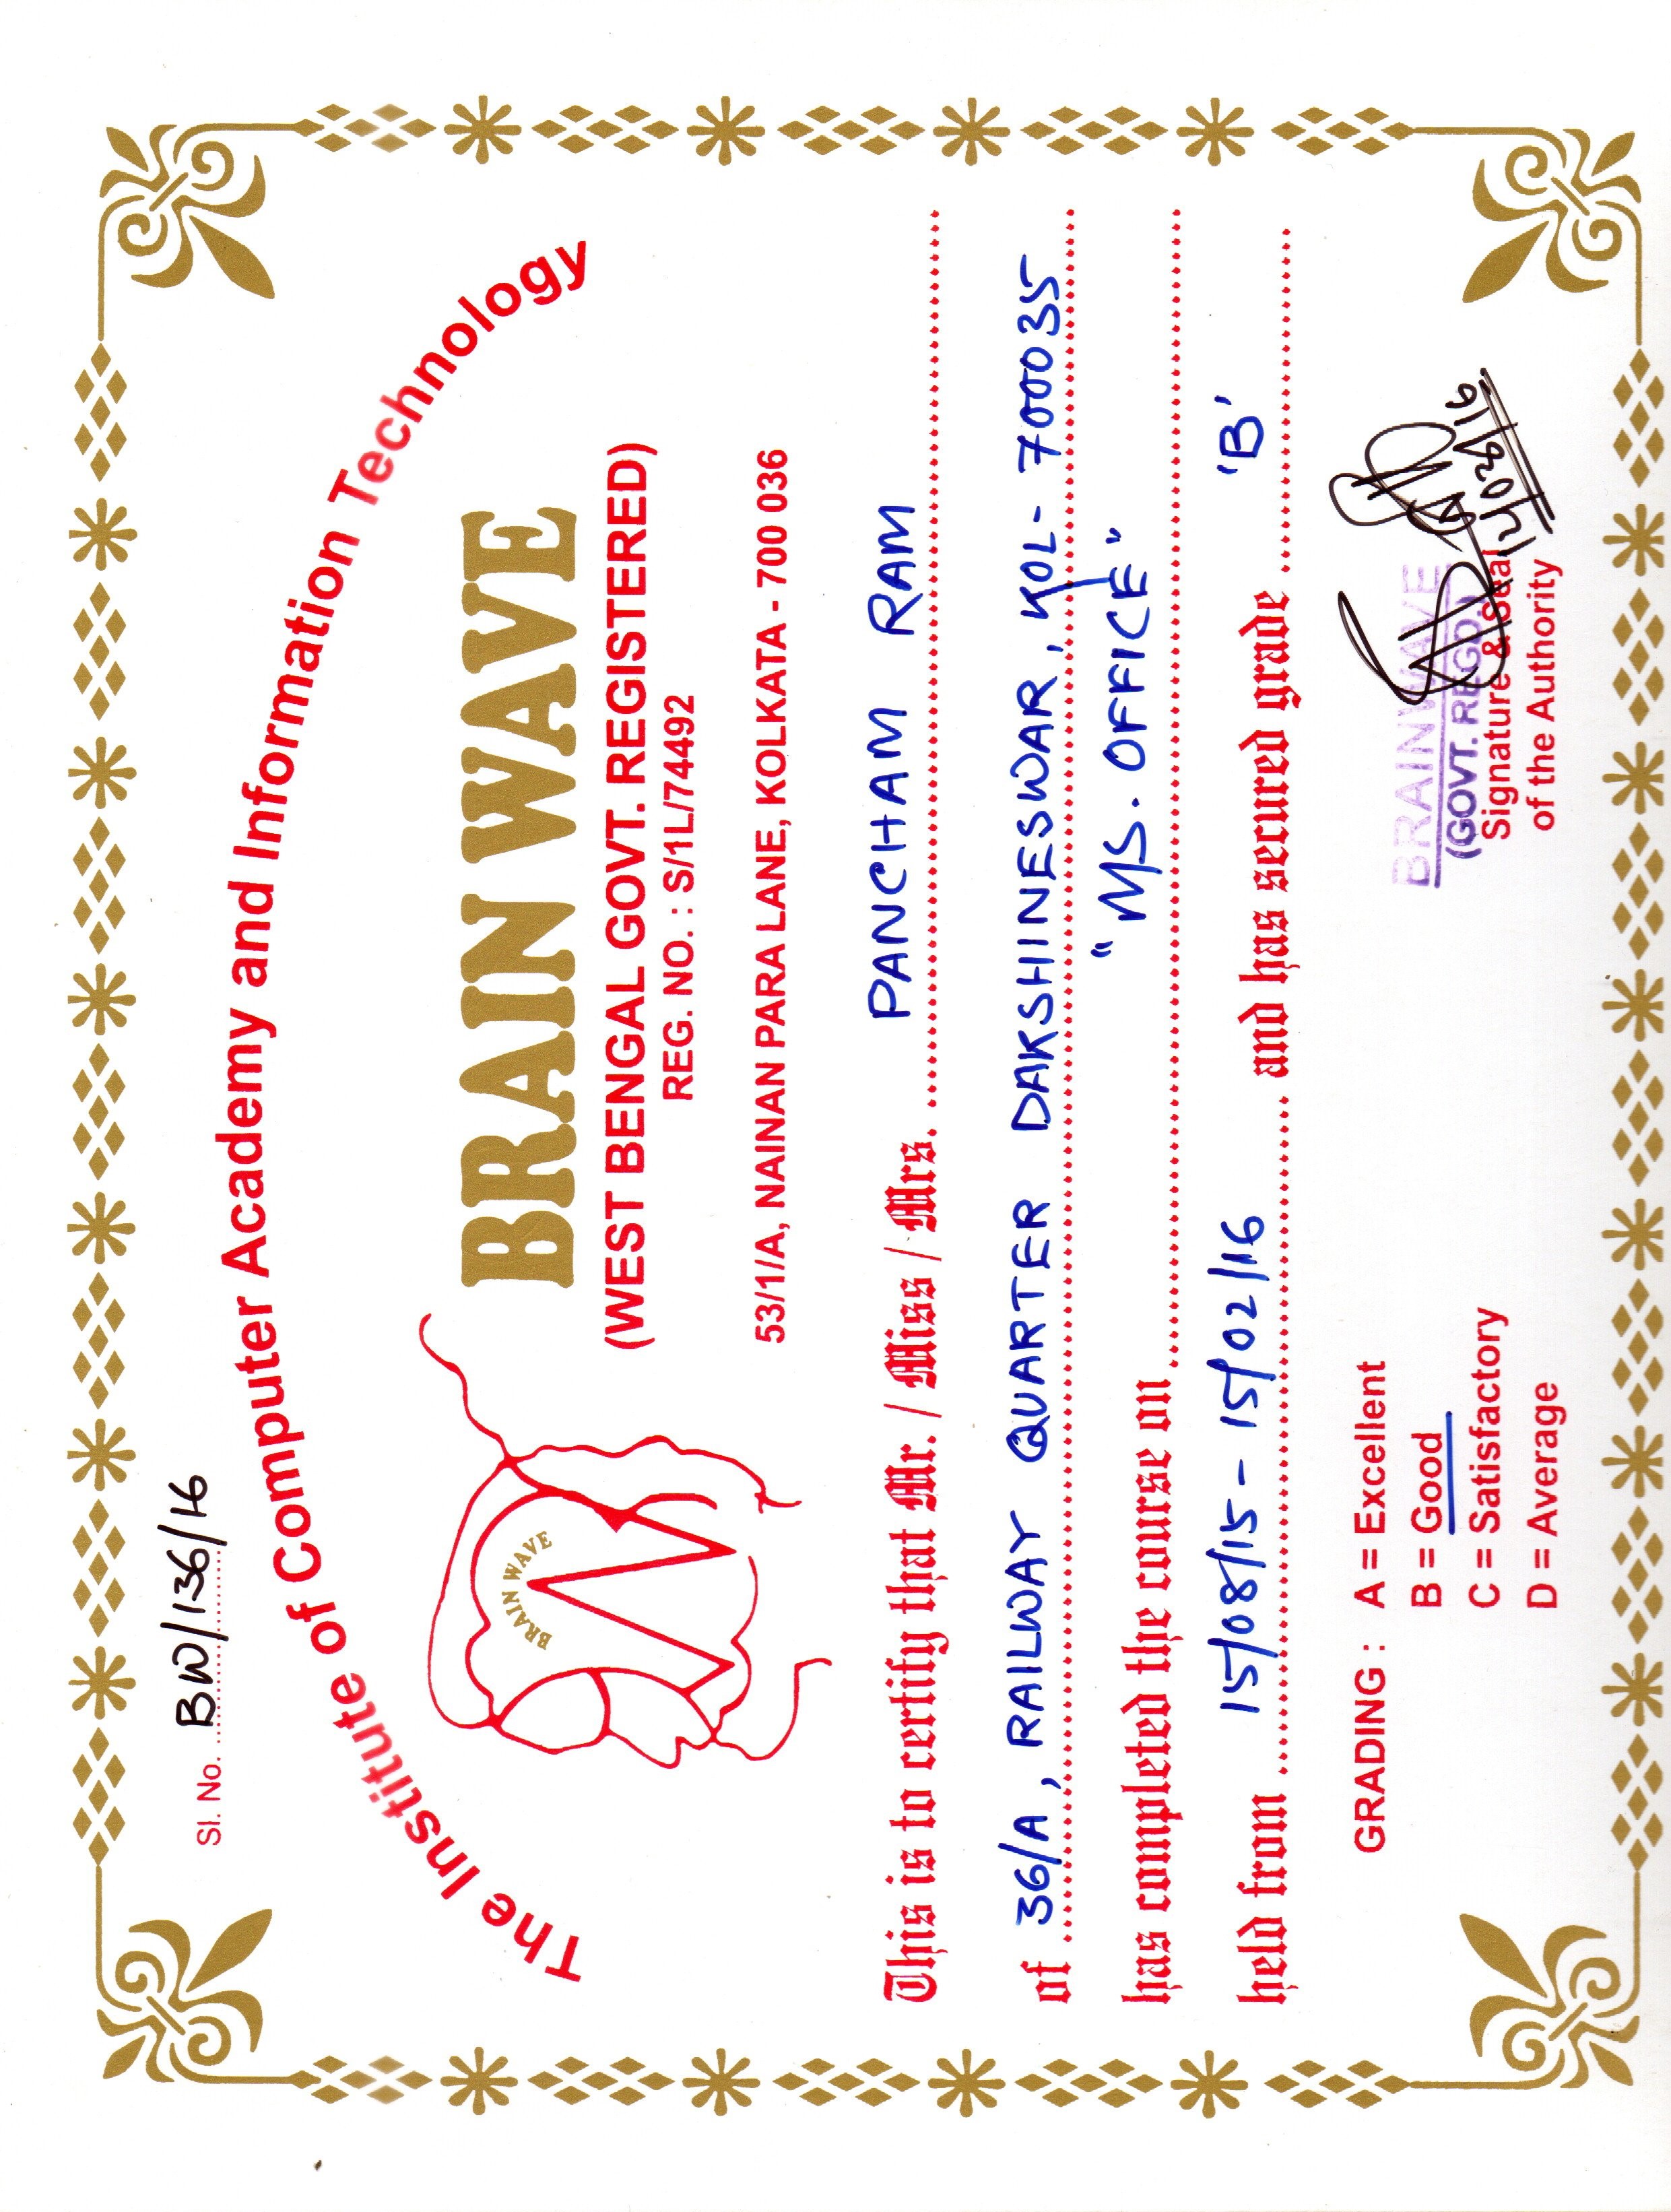 Sl. No. BW/136/16
The Institute of Computer Academy and Information Technology
BRAIN WAVE
BRAIN WAVE
(WEST BENGAL GOVT. REGISTERED)
REG. NO. : S/1L/74492
53/1/A, NAINAN PARA LANE, KOLKATA - 700 036
This is to certify that Mr. / Miss / Mrs. PANCHAM RAM
of 36/A, RAILWAY QUARTER DAKSHINESWAR, KOL- 700035
has completed the course on "MS. OFFICE"
held from 15/08/15 - 15/02/16 and has secured grade 'B'
GRADING : A = Excellent
B = Good
C = Satisfactory
D = Average
BRAINWAVE
(GOVT. REGD.)
Signature & Seal
of the Authority